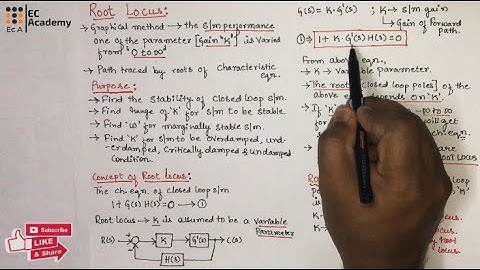 EC
Academy
ECA
Root Locus:
→ Graphical method → the s/m performance
one of the parameter [Gain 'K'] is varied
from "0 to ∞"
→ Path traced by roots of characteristic eqn.
Purpose:
→ Find the stability of closed loop s/m.
→ Find range of 'K' for s/m to be stable.
→ Find 'ω' for marginally stable s/m.
→ Find 'K' for s/m to be overdamped, und-
erdamped, Critically damped & undamped
Condition.
Concept of Root Locus:
The ch. eqn. of closed loop s/m
1+ G(s) H(s) = 0 → ①
Root locus → K is assumed to be a variable
Parameter
R(s) + - K G'(s) C(s)
H(s)
SUBSCRIBE
LIKE
& Share
G(s) = K·G'(s) ; K → s/m gain
↳ Gain of forward
path.
①⇒ 1+ K·G'(s) H(s) = 0
From above eqn.,
→ K → Variable parameter.
→ The roots [closed loop poles] of
the above depends on 'K'.
→ If 'K' -∞ to ∞
will get
ch. eqn.
root locus
Ro
K
locus.
K
locus.
root
Locus.